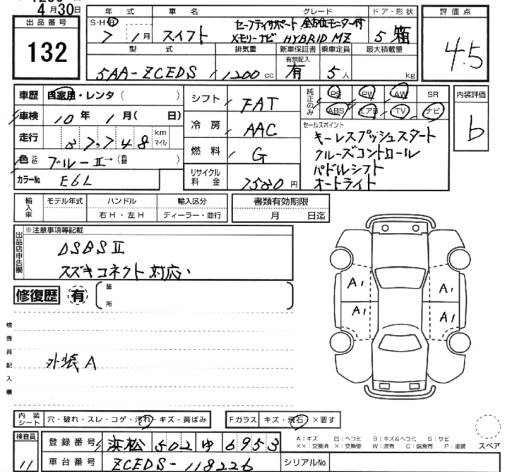 4月30日
出品番号
132
年式 車名 グレード ドア・形状
S・H・R 7年1月 スイフト
セーフティサポート 全方位モニター付
メモリーナビ HYBRID MZ
5 箱
評価点
4.5
型式 排気量 新車保証書 乗車定員 最大積載量
有無記入
5AA-ZCEDS 1200cc 有 5人 kg
内装評価
b
車歴 自家用・レンタ( )
車検 10年1月( 日)
走行 3,748 km マイル
色 ブルーII→( )
カラーNo. E6L
シフト FAT
冷房 AAC
燃料 G
リサイクル料金 7580円
純正のみ
PS PW AW SR
ABS エアB TV ナビ
セールスポイント
キーレスプッシュスタート
クルーズコントロール
パドルシフト
オートライト
輸入車 モデル年式 ハンドル 輸入区分
右H・左H ディーラー・並行
書類有効期限
月 日迄
出品店申告欄
※注意事項等記載
DSBSII
スズキコネクト対応
修復歴 有 箇所
検査員記入欄
外装A
A1 A1
A1
内装シート 穴・破れ・スレ・コゲ・汚れ・キズ・黄ばみ
Fガラス キズ・飛石・×要す
検査員
11
登録番号 浜松 502 ゆ 6953
車台番号 ZCEDS-118226
シリアルNo.
スペア